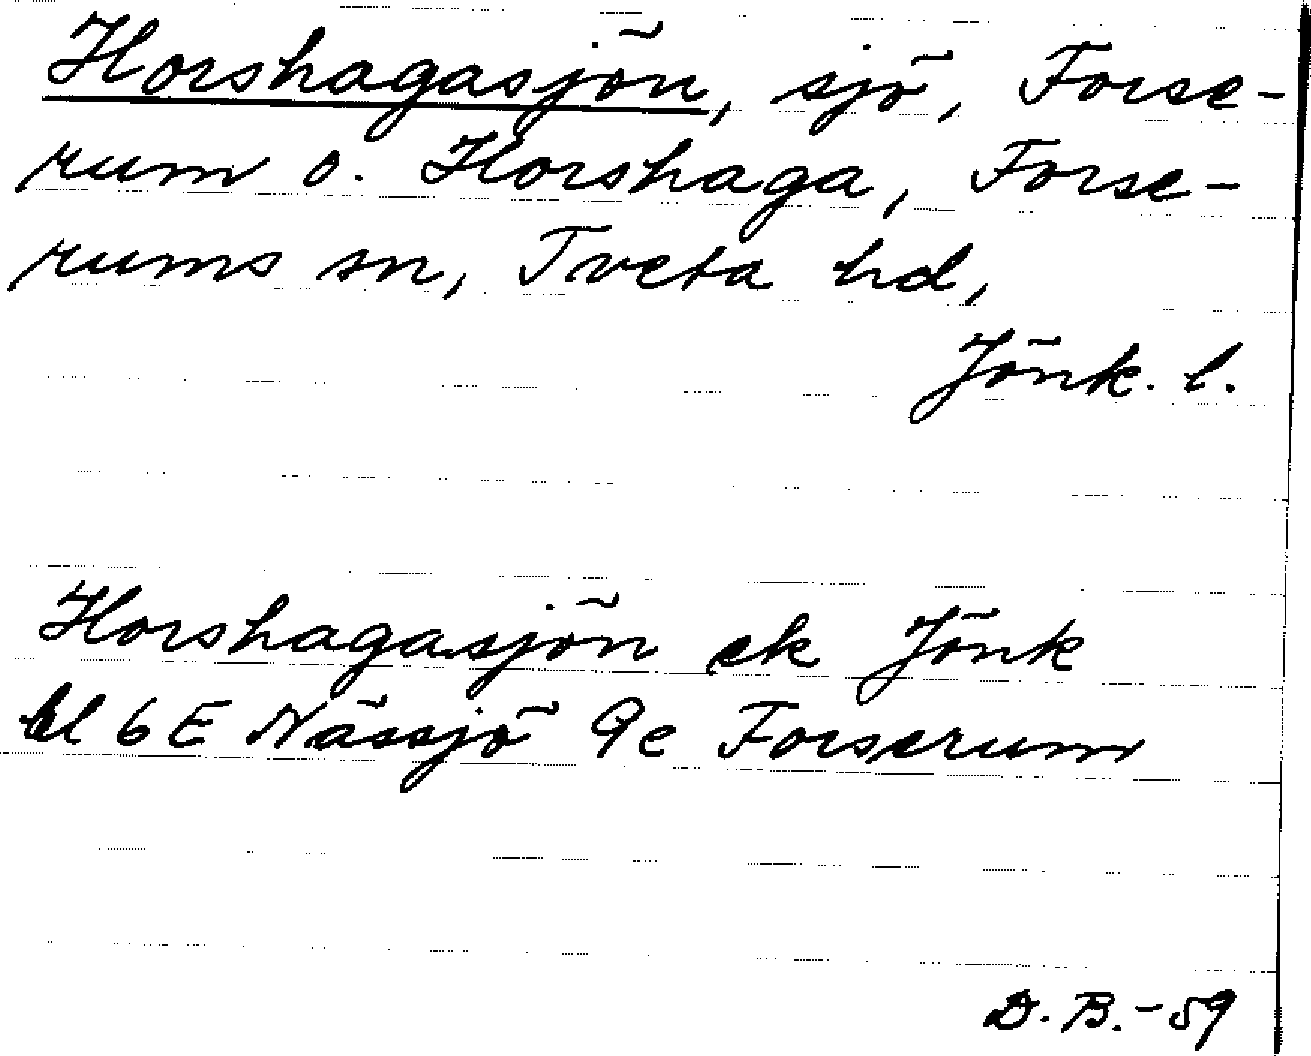 Horshagasjön, sjö, Forse-
rum o. Horshaga, Forse-
rums sn, Tveta hd,
Jönk. l.
Horshagasjön ek Jönk
bl 6E Nässjö 9e Forserum
D.B.-59